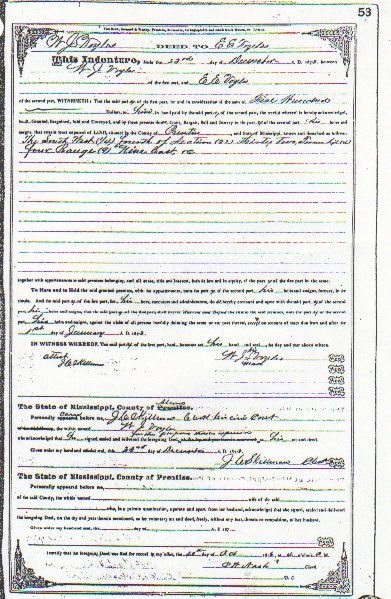 53
W. J. Voyles DEED TO E E Voyles
This Indenture, Made the 23rd day of December A. D. 1898, between
W. J. Voyles
of the first part, and E E Voyles
of the second part, WITNESSETH: That the said party of the first part, for and in consideration of the sum of Five Hundred
Dollars, to him in hand paid by the said party of the second part, the receipt whereof is hereby acknowledged,
hath Granted, Bargained, Sold and Conveyed, and by these presents doth Grant, Bargain, Sell and Convey to the said party of the second part his heirs and
assigns, that certain tract or parcel of LAND, situated in the County of Prentiss and State of Mississippi, known and described as follows:
The South West (1/4) fourth of Section (32) Thirty Two, Township
four Range (9) Nine East
together with appurtenances to said premises belonging, and all estate, title and interest, both in law and in equity, of the part y of the first part in the same.
To Have and to Hold the said granted premises, with the appurtenances, unto the said party of the second part, his heirs and assigns, forever, in fee
simple. And the said party of the first part, for his heirs, executors and administrators, do hereby covenant and agree with the said party of the second
part, his heirs and assigns, that the said party of the first part, shall forever Warrant and Defend the title to the said premises, unto the said party of the second
part, his heirs and assigns, against the claim of all persons lawfully claiming the same or any part thereof, except on account of taxes due from and after the
1st day of January A. D. 1898.
IN WITNESS WHEREOF, The said party of the first part, hath hereunto set his hand and seal the day and year above written.
attest
W. J. Voyles
mark
The State of Mississippi, County of Prentiss. Alcorn
Personally appeared before me, J. C. Skillman Clerk of the Circuit Court
W. J. Voyles
who acknowledged that he signed, sealed and delivered the foregoing Deed, his act and deed.
Given under my hand and official seal, this 23rd day of December A. D. 1898.
J. C. Skillman Clerk
The State of Mississippi, County of Prentiss.
Personally appeared before me,
of the said County, the within named wife of the said
who, in a private examination, separate and apart from her husband, acknowledged that she signed, sealed and delivered
the foregoing Deed, on the day and year therein mentioned, as her voluntary act and deed, freely, without any fear, threats or compulsion, of her husband.
Given under my hand and seal, this day of A. D. 189
I certify that the foregoing Deed was filed for record in my office, the
Nash Clerk
D. C.